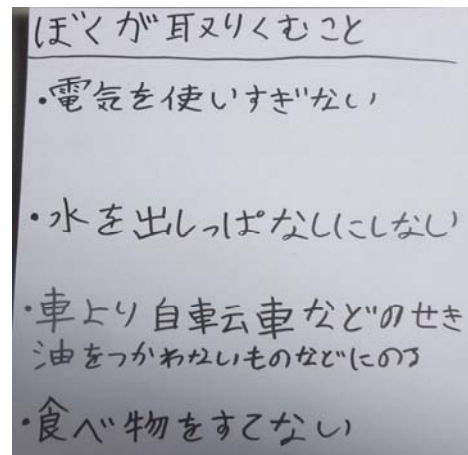 ぼくが取りくむこと
・電気を使いすぎない
・水を出しっぱなしにしない
・車より自転車などのせき
油をつかわないものなどにのる
・食べ物をすてない